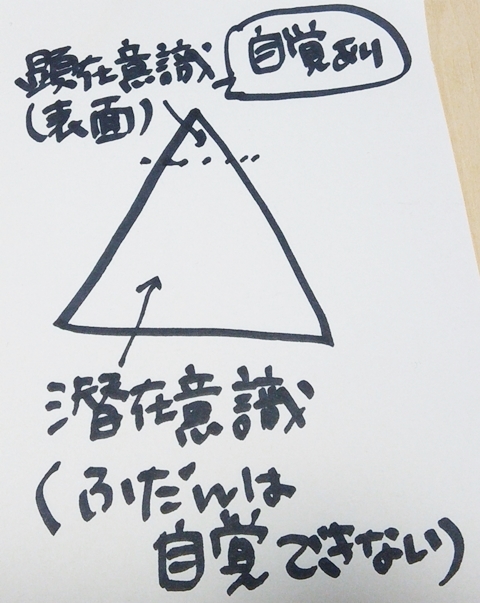 顕在意識
(表面)
自覚あり
潜在意識
(ふだんは
自覚できない)